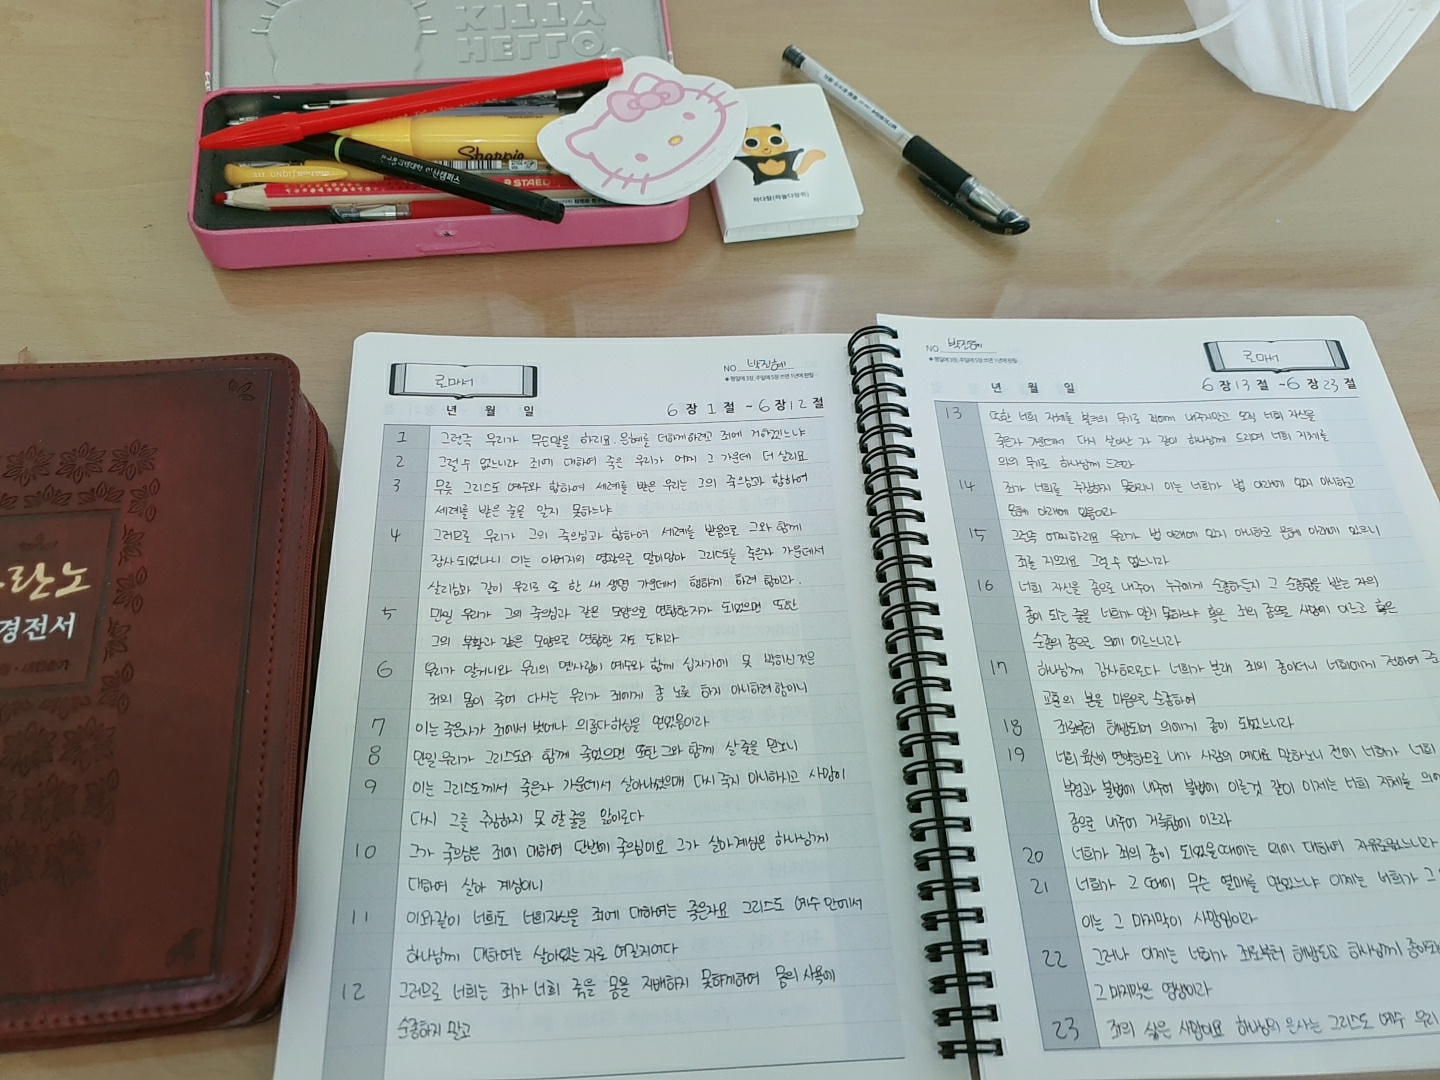 KITTY
HELLO
Sharpie
STAEDTLER
하다람(하늘다람쥐)
두란노
성경전서
로마서
NO. 박진혜
년 월 일
6 장 1 절 ~ 6 장 12 절
1 그런즉 우리가 무슨말을 하리요. 은혜를 더하게하려고 죄에 거하겠느냐
2 그럴 수 없느니라 죄에 대하여 죽은 우리가 어찌 그 가운데 더 살리요
3 무릇 그리스도 예수와 합하여 세례를 받은 우리는 그의 죽으심과 합하여
세례를 받은 줄을 알지 못하느냐
4 그러므로 우리가 그의 죽으심과 합하여 세례를 받음으로 그와 함께
장사 되었나니 이는 아버지의 영광으로 말미암아 그리스도를 죽은자 가운데서
살리심과 같이 우리로 또 한 새 생명 가운데서 행하게 하려 함이라.
5 만일 우리가 그의 죽으심과 같은 모양으로 연합한자가 되었으면 또한
그의 부활과 같은 모양으로 연합한 자도 되리라
6 우리가 알거니와 우리의 옛사람이 예수와 함께 십자가에 못 박히신 것은
죄의 몸이 죽어 다시는 우리가 죄에게 종 노릇 하지 아니하려 함이니
7 이는 죽은자가 죄에서 벗어나 의롭다하심을 얻었음이라
8 만일 우리가 그리스도와 함께 죽었으면 또한 그와 함께 살 줄을 믿노니
9 이는 그리스도께서 죽은자 가운데서 살아나셨으매 다시 죽지 아니하시고 사망이
다시 그를 주장하지 못 할 줄을 앎이로다
10 그가 죽으심은 죄에 대하여 단번에 죽으심이요 그가 살아 계심은 하나님께
대하여 살아 계심이니
11 이와같이 너희도 너희자신을 죄에 대하여는 죽은자요 그리스도 예수 안에서
하나님께 대하여는 살아있는 자로 여길지어다
12 그러므로 너희는 죄가 너희 죽을 몸을 지배하지 못하게하여 몸의 사욕에
순종하지 말고
로마서
NO. 박진혜
년 월 일
6 장 13 절 ~ 6 장 23 절
13 또한 너희 지체를 불의의 무기로 죄에게 내주지말고 오직 너희 자신을
죽은자 가운데서 다시 살아난 자 같이 하나님께 드리며 너희 지체를
의의 무기로 하나님께 드리라
14 죄가 너희를 주장하지 못하리니 이는 너희가 법 아래에 있지 아니하고
은혜 아래에 있음이라
15 그런즉 어찌하리요 우리가 법 아래에 있지 아니하고 은혜 아래에 있으니
죄를 지으리요 그럴 수 없느니라
16 너희 자신을 종으로 내주어 누구에게 순종하든지 그 순종함을 받는 자의
종이 되는 줄을 너희가 알지 못하느냐 혹은 죄의 종으로 사망에 이르고 혹은
순종의 종으로 의에 이르느니라
17 하나님께 감사하리로다 너희가 본래 죄의 종이더니 너희에게 전하여 준
교훈의 본을 마음으로 순종하여
18 죄로부터 해방되어 의에게 종이 되었느니라
19 너희 육신이 연약하므로 내가 사람의 예대로 말하노니 전에 너희가 너희
부정과 불법에 내주어 불법에 이른것 같이 이제는 너희 지체를 의에
종으로 내주어 거룩함에 이르라
20 너희가 죄의 종이 되었을때에는 의에 대하여 자유로웠느니라
21 너희가 그 때에 무슨 열매를 얻었느냐 이제는 너희가 그
이는 그 마지막이 사망임이라
22 그러나 이제는 너희가 죄로부터 해방되고 하나님께 종이되어
그 마지막은 영생이라
23 죄의 삯은 사망이요 하나님의 은사는 그리스도 예수 우리